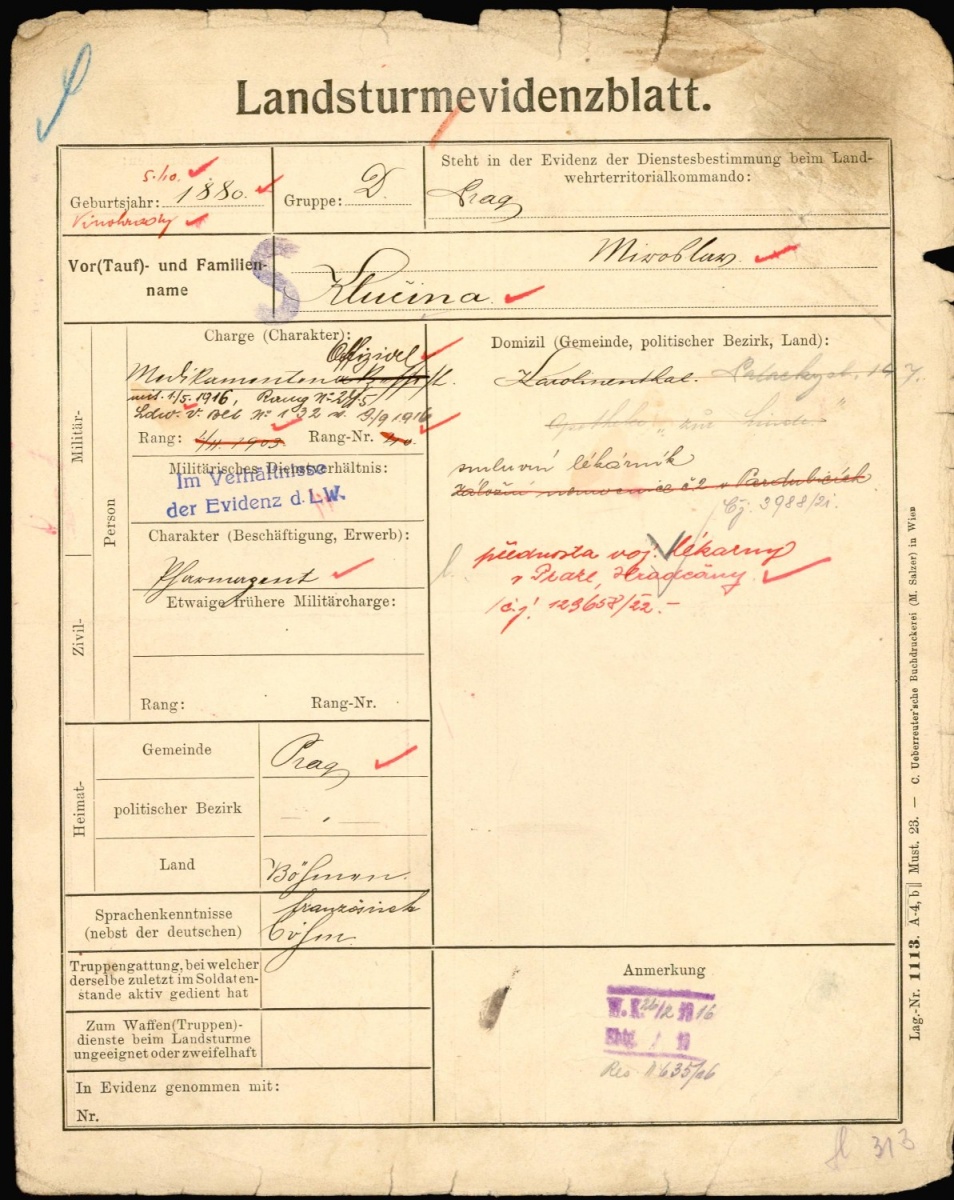 Landsturmevidenzblatt.
5./10.
Geburtsjahr: 1880.
Vinohrady
Gruppe: D.
Steht in der Evidenz der Dienstesbestimmung beim Land-
wehrterritorialkommando:
Prag
Vor(Tauf)- und Familien-
name
S
Miroslav
Klučina
Militär-
Zivil-
Person
Charge (Charakter):
Offizial
Medikamenten
mit 1/5 1916, Rang No 245
Ldw. V. Blt No 132 v. 2/9 1916
Rang: 1/11. 1903 Rang-Nr. 40.
Militärisches Dienstverhältnis:
Im Verhältnisse
der Evidenz d. L.W.
Charakter (Beschäftigung, Erwerb):
Pharmazent
Etwaige frühere Militärcharge:
Rang: Rang-Nr.
Domizil (Gemeinde, politischer Bezirk, Land):
Karolinenthal. Palackyst.
Apotheke „zur Linde"
smluvní lékárník
záložní nemocnice č 2 v Pardubicích
Čj. 3988/21.
přednosta voj. lékárny
v Praze, Hradčany.
/čj. 123658/22.-
Heimat-
Gemeinde
Prag
politischer Bezirk
Land
Böhmen.
Sprachenkenntnisse
(nebst der deutschen)
französisch
böhm.
Truppengattung, bei welcher
derselbe zuletzt im Soldaten-
stande aktiv gedient hat
Zum Waffen(Truppen)-
dienste beim Landsturme
ungeeignet oder zweifelhaft
In Evidenz genommen mit:
Nr.
Anmerkung
26/2 1916
Res No 635/06
313
Lag.-Nr. 1113. A-4, b || Must. 23. — C. Ueberreuter'sche Buchdruckerei (M. Salzer) in Wien